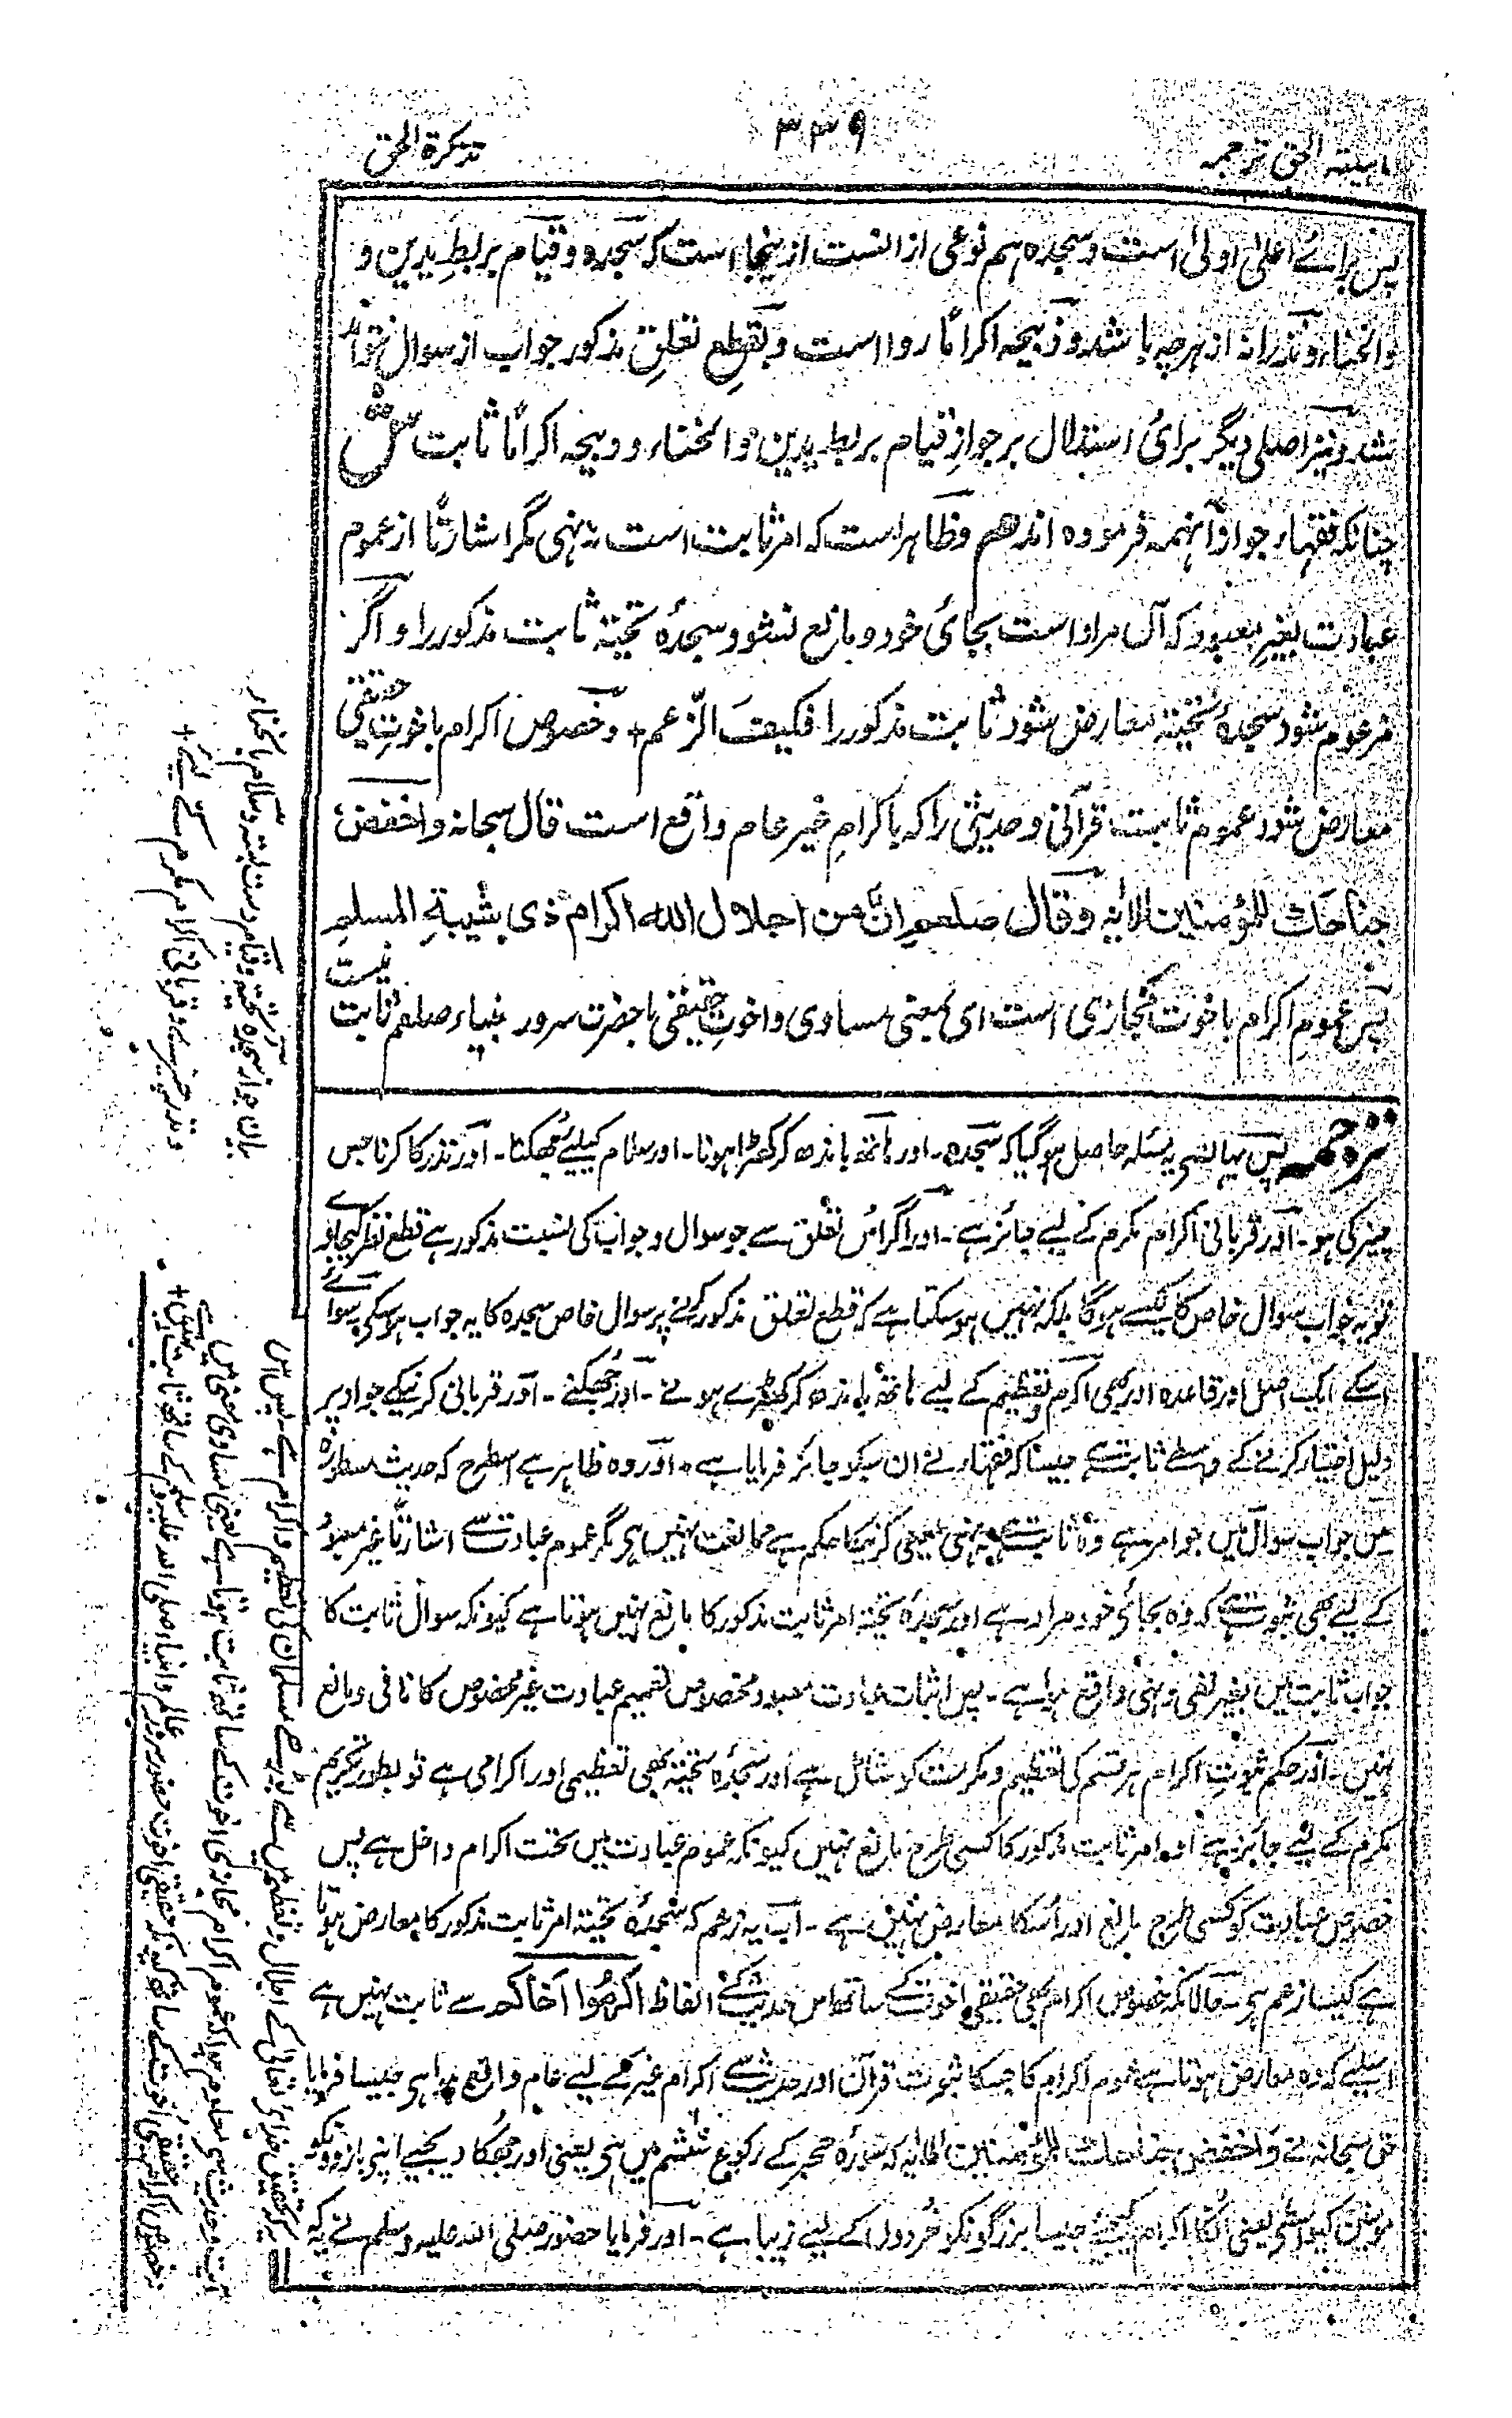 ترجمہ
۳۳۹
تذکرة الحق
پس برائے اعلیٰ اولیٰ است و سجدہ ہم نوعی از انست ازینجا است کہ سجدہ و قیام بربطِ یدین و
وانحناء و نذرانہ از ہرچہ باشد و ذبیحہ اکرامًا روا است و بقطعِ تعلقِ مذکور جواب از سوال
شد و نیز اصلی دیگر برائ استدلال بر جوازِ قیام بربطِ یدین و انحناء و ذبیحہ اکرامًا ثابت شد
چنانکہ فقہاء جواز آنہمہ فرمودہ اندھم و ظاہر است کہ امر ثابت است نہ نہی مگر اشارتًا از عموم
عبادت بغیرِ معبود کہ آں مراد است بجائ خود و مانع نشود سجدۂ تحیۃ ثابت مذکور را و اگر
مزعوم شود سجدۂ تحیۃ معارض شود ثابت مذکور را فکیفَ الزعم + و خصوص اکرام باخوتِ حقیقی
معارض شود عموم ثابت قرآنی و حدیثی را کہ باکرامِ غیر عام واقع است قال سبحانہ واخفض
جناحک للمؤمنین الایہ و قال صلعم ان من اجلال اللہ اکرام ذی بشیبة المسلم
پس عمومِ اکرام باخوت مجازی است ای بمعنی مساوی و اخوتِ حقیقی باحضرت سرور انبیاء صلعم ثابت نیست
ترجمہ پس یہاں سے یہ مسئلہ حاصل ہوگیا کہ سجدہ۔ اور ہاتھ باندھ کر کھڑا ہونا۔ اور سلام کیلئے جھکنا۔ اور نذر کا کرنا جس
چیز کی ہو۔ اور قربانی اکرام مکرم کے لیے جائز ہے۔ اور اگر اس تعلق سے جو سوال و جواب کی نسبت مذکور ہے قطع نظر کیجاوے
تو یہ جواب سوال خاص کا کیسے ہوگا بلکہ نہیں ہو سکتا ہے کہ قطع تعلق مذکور کرنے پر سوال خاص سجدہ کا یہ جواب ہوسکے سوائے
اسکے ایک اصل اور قاعدہ اور بھی اکرام و تعظیم کے لیے ہاتھ باندھ کر کھڑے ہونے۔ اور جھکنے۔ اور قربانی کرنیکے جواز پر
دلیل اختیار کرنے کے واسطے ثابت ہے جیسا کہ فقہاء نے ان سبکو جائز فرمایا ہے۔ اور وہ ظاہر ہے اسطرح کہ حدیث مسطورہ
میں جواب سوال میں جو امر ہے وہ ثابت ہے نہ نہی یعنی کرنیکا حکم ہے ممانعت نہیں ہے مگر عموم عبادت سے اشارتًا غیر معبود
کے لیے بھی ثبوت ہے کہ وہ بجائ خود مراد ہے اور سجدۂ تحیۃ امر ثابت مذکور کا مانع نہیں ہوتا ہے کیونکہ سوال ثابت کا
جواب ثابت میں بغیر نفی و نہی واقع ہوا ہے۔ پس اثبات عبادت معبود مخصوص تعمیم عبادت غیر مخصوص کا نافی و مانع
نہیں۔ اور حکم ثبوتِ اکرام ہر قسم کی تعظیم و مکرمت کو شامل ہے اور سجدۂ تحیۃ بھی تعظیمی اور اکرامی ہے تو بطور تکریم
مکرم کے لیے جائز ہے اور امر ثابت مذکور کا کسی طرح مانع نہیں کیونکہ عموم عبادت میں تحت اکرام داخل ہے پس
خصوص عبادت کو کسی طرح مانع اور اُسکا معارض نہیں ہے۔ اب یہ زعم کہ سجدۂ تحیۃ امر ثابت مذکور کا معارض ہوتا
ہے کیسا زعم ہے۔ حالانکہ خصوص اکرام بھی حقیقی اخوت کے ساتھ اس حدیث کے الفاظ اکرموا اخاکم سے ثابت نہیں ہے
اسلیے کہ وہ معارض ہوتا ہے عموم اکرام کا جسکا ثبوت قرآن اور حدیث سے اکرام غیر کے لیے عام واقع ہوا ہی جیسا فرمایا
حق سبحانہ نے وَاخفض جناحک للمؤمنین الایہ کہ سورہ حجر کے رکوع ششم میں ہی یعنی اور جھکا دیجیے اپنی بازوونکو
مومنین کیواسطے یعنی انکا اکرام کیجیے جیسا بزرگونکو خردوں کے لیے زیبا ہے۔ اور فرمایا حضور صلی اللہ علیہ وسلم نے کہ
بیان جواز سجدۂ تحیۃ و قیام دست بستہ و سلام بانحناء
و نذر ہر چیز و قربانی اکرام مکرم کے لیے +